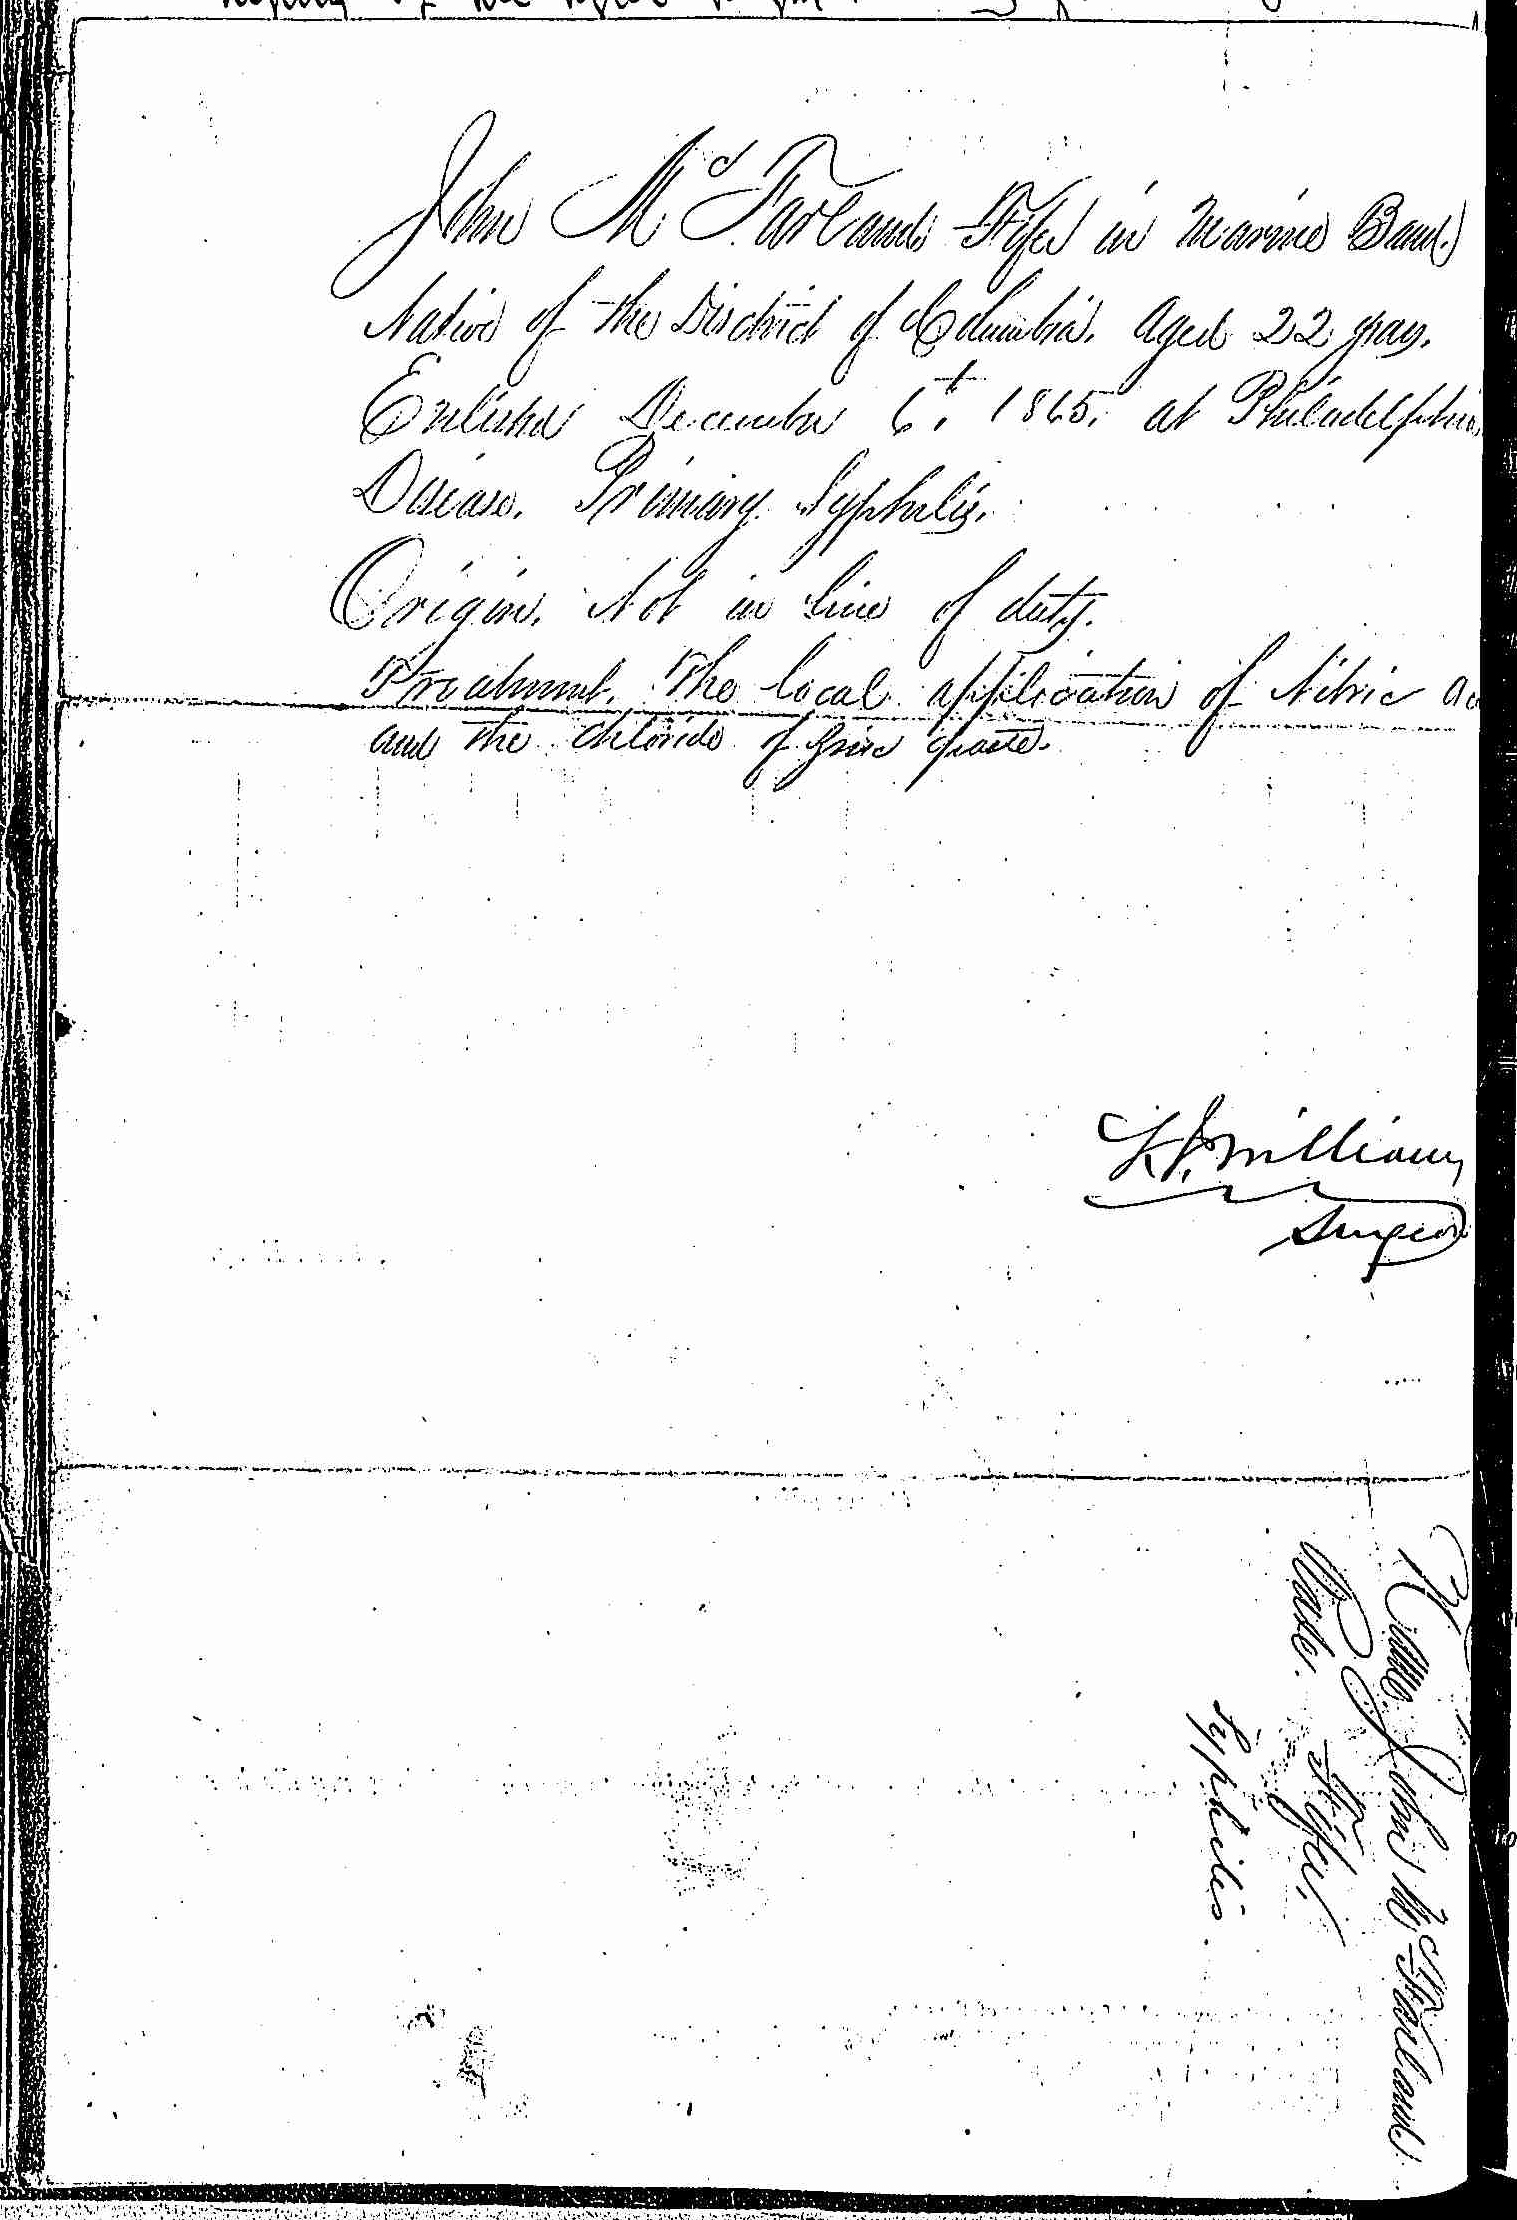 John McFarland Fifer in Marine Band.
Native of the District of Columbia. Aged 22 years.
Enlisted December 6t. 1865. at Philadelphia.
Disease. Primary Syphilis.
Origin. Not in line of duty.
Treatment. The local application of Nitric
and the chloride of zinc paste.
Williams
Surgeon
Name. John McFarland.
Rank. Fifer.
Syphilis.